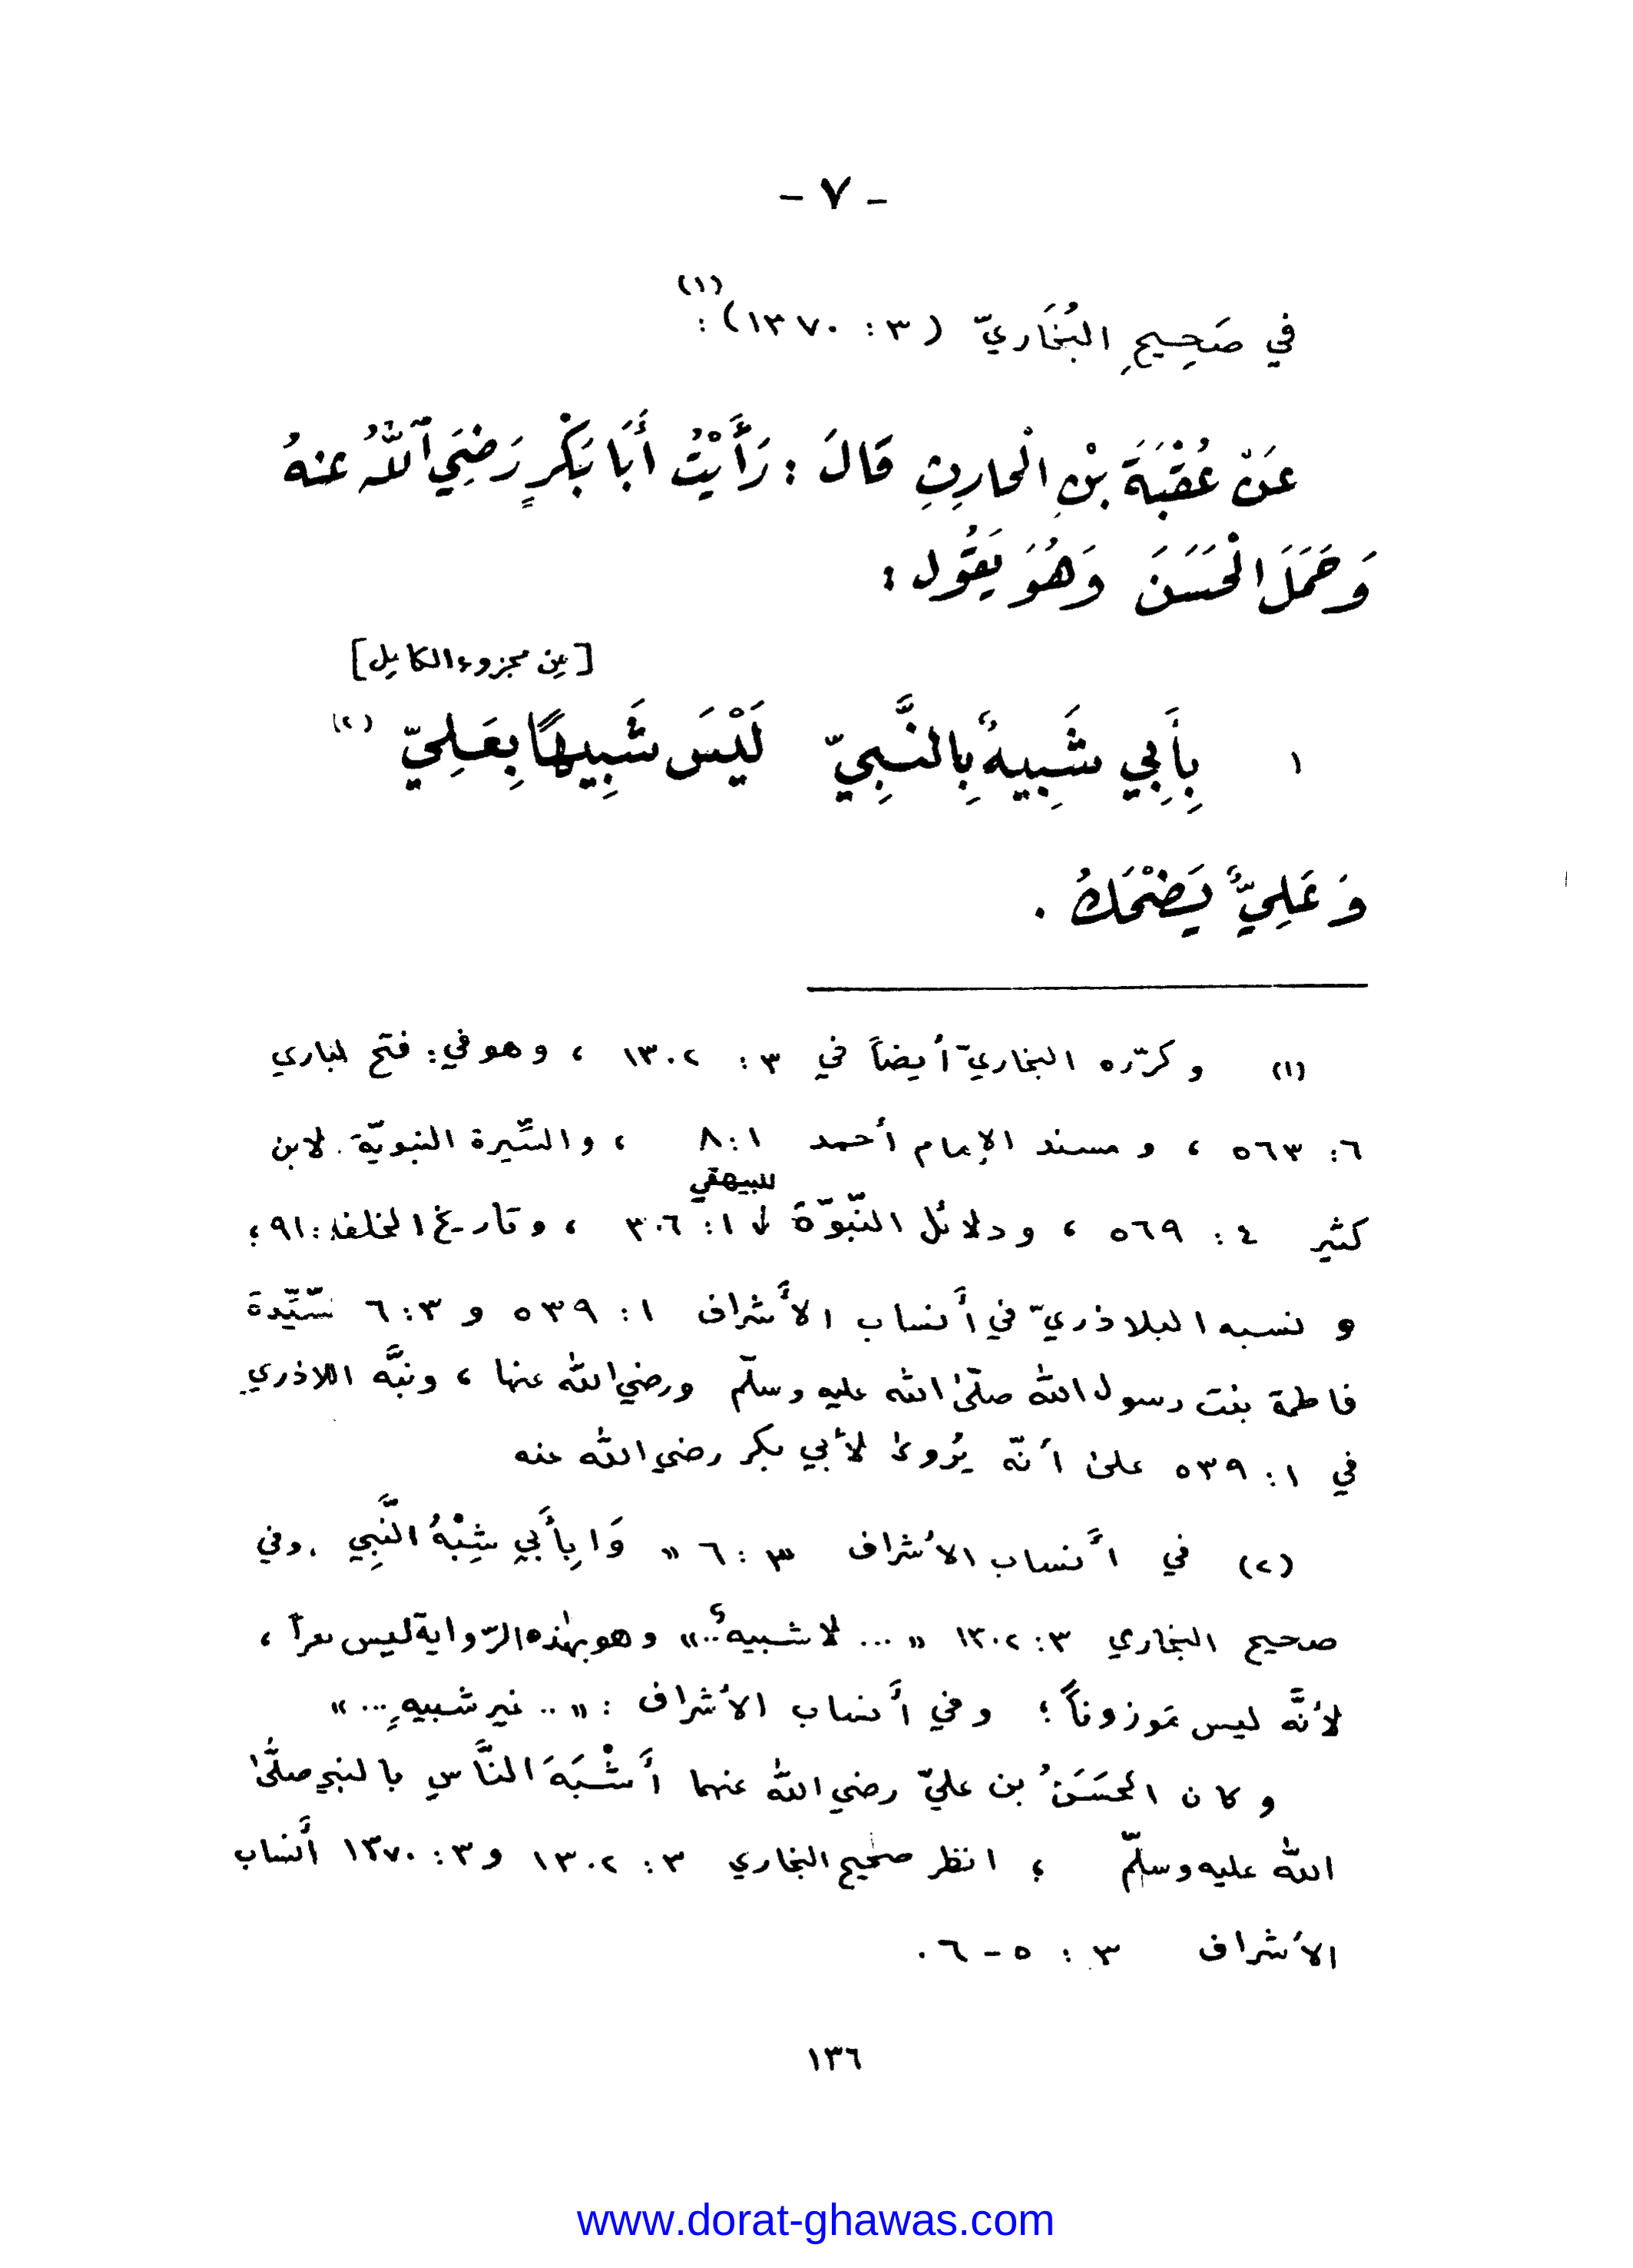 - ٧ -
(١)
في صَحِيحِ البُخَاريّ (٣: ١٣٧٠):
عَنْ عُقْبَةَ بْنِ الْحارِثِ قَالَ: رَأَيْتُ أَبَا بَكْرٍ رَضِيَ ٱللّٰهُ عنهُ
وَحَمَلَ الْحَسَنَ وَهُوَ يَقُول:
[مِن مجزوء الكامِل]
١ بِأَبِي شَبِيهٌ بِالنَّبِيّ لَيْسَ شَبِيهًا بِعَلِيّ (٢)
وَعَلِيٌّ يَضْحَكُ .
(١) وكرّره البخاريّ أيضاً في ٣: ١٣٠٢ ، وهو في: فتح الباري
٦: ٥٦٣ ، ومسند الإمام أحمد ١: ٨ ، والسِّيرة النبويّة لابن
للبيهقي
كثير ٤: ٥٦٩ ، ودلائل النّبوّة ↓ ١: ٣٠٦ ، وتاريخ الخلفاء: ٩١ ؛
ونسبه البلاذريّ في أنساب الأشراف ١: ٥٣٩ و ٣: ٦ لسّيِّدة
فاطمة بنت رسول الله صلّىٰ الله عليه وسلّم ورضي الله عنها ، ونبَّه البلاذري
في ١: ٥٣٩ علىٰ أنّه يُروىٰ لأبي بكر رضي الله عنه
(٢) في أنساب الأشراف ٣: ٦ « وَا بِأَبِي شِبْهُ النَّبِي . وفي
صحيح البخاري ٣: ١٣٠٢ « ... لا شبيهٌ .. » وهو بهٰذه الرّواية ليس شعراً ،
لأنَّه ليس مَوزوناً ؛ وفي أنساب الأشراف : « .. غير شبيهٍ ... »
وكان الحَسَنُ بن عليّ رضي الله عنهما أَشْبَهَ النَّاسِ بالنبي صلَّىٰ
الله عليه وسلّم ؛ انظر صحيح البخاري ٣: ١٣٠٢ و ٣: ١٣٧٠ أنساب
الأشراف ٣: ٥ - ٦ .
١٣٦
www.dorat-ghawas.com